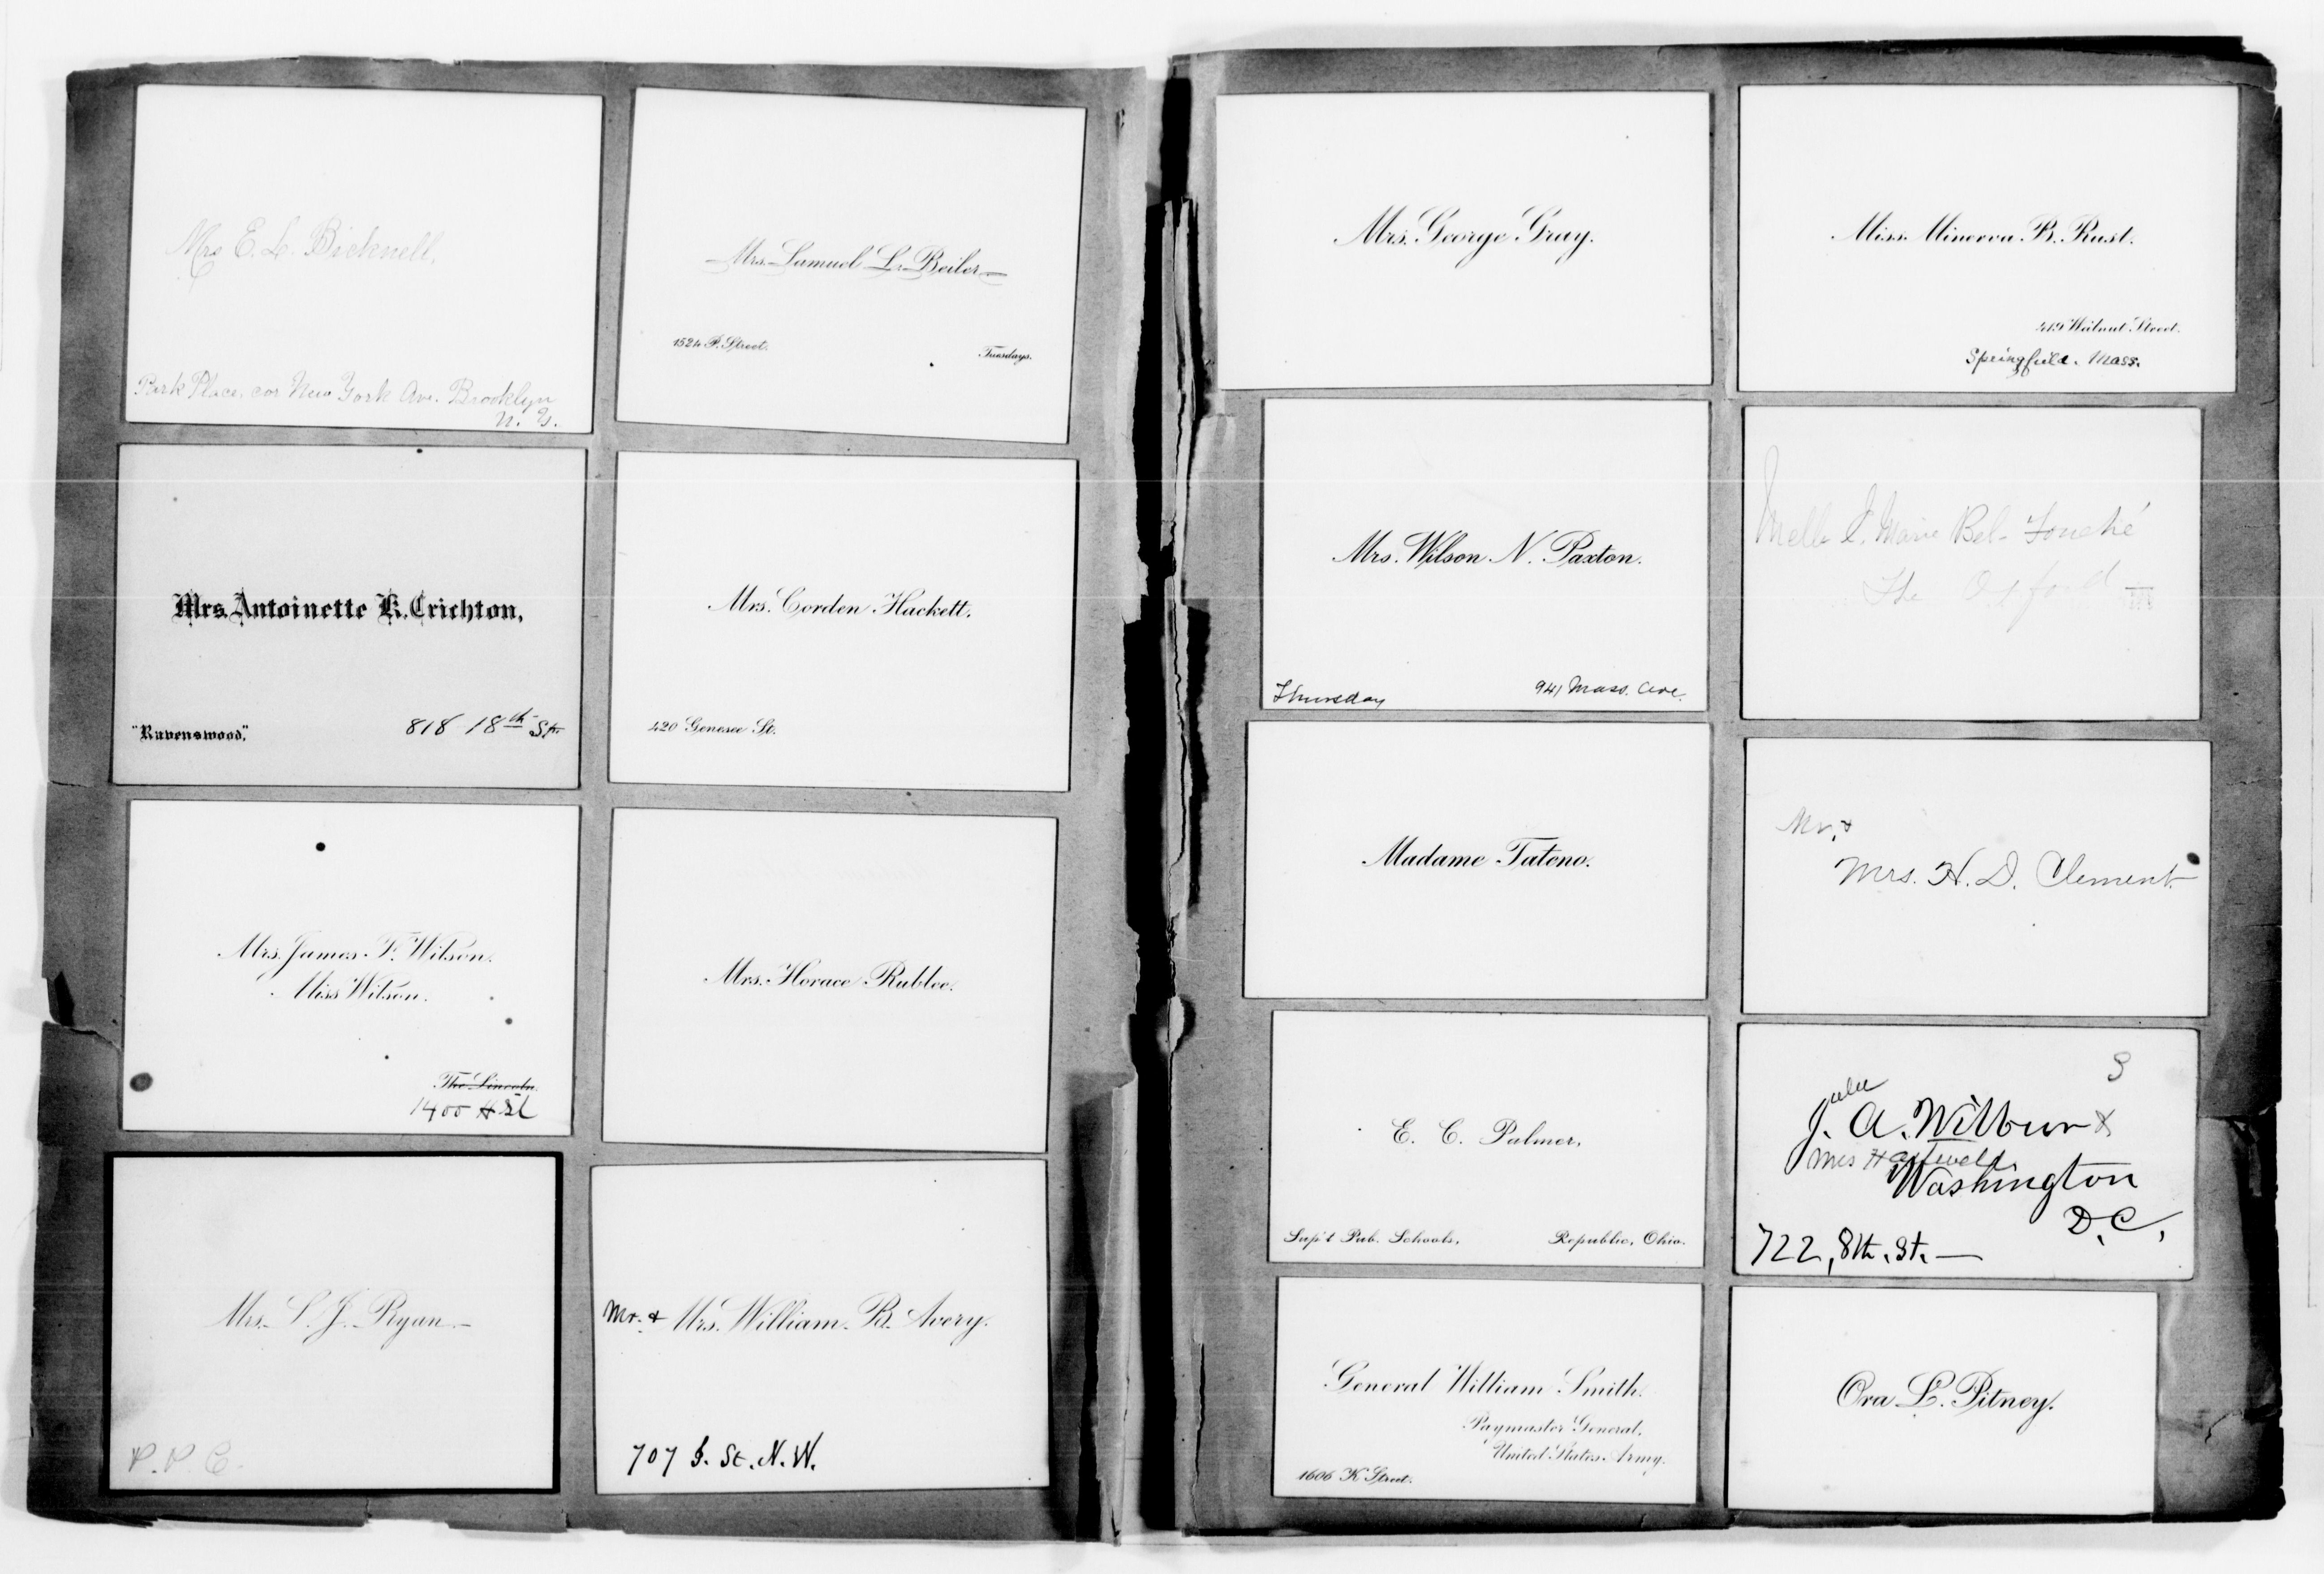 Mrs E. L. Bicknell,
Park Place. cor New York Ave. Brooklyn
N. Y.
Mrs. Samuel L. Beiler
1524 P. Street.
Tuesdays.
Mrs. Antoinette K. Crichton,
"Ravenswood,"
818 18th St
Mrs. Corden Hackett.
420 Genesee St.
Mrs. James F. Wilson.
Miss Wilson.
The Lincoln.
1400 H St
Mrs. Horace Rublee.
Mrs. S. J. Ryan
P. P. C.
Mr. & Mrs. William B. Avery.
707 I. St. N. W.
Mrs. George Gray.
Miss Minerva B. Rust.
419 Walnut Street.
Springfield. Mass.
Mrs. Wilson N. Paxton.
Thursday
941 Mass. Ave.
Melle Marie Bel- Fouché
The Oxford
Madame Tateno.
Mr. &
Mrs. H. D. Clement
E. C. Palmer,
Sup't Pub. Schools,
Republic, Ohio.
J. A. Wilbur &
Mrs
Washington
D. C.,
722, 8th. St. —
General William Smith.
Paymaster General,
United States Army.
1606 K Street.
Ora L. Pitney.